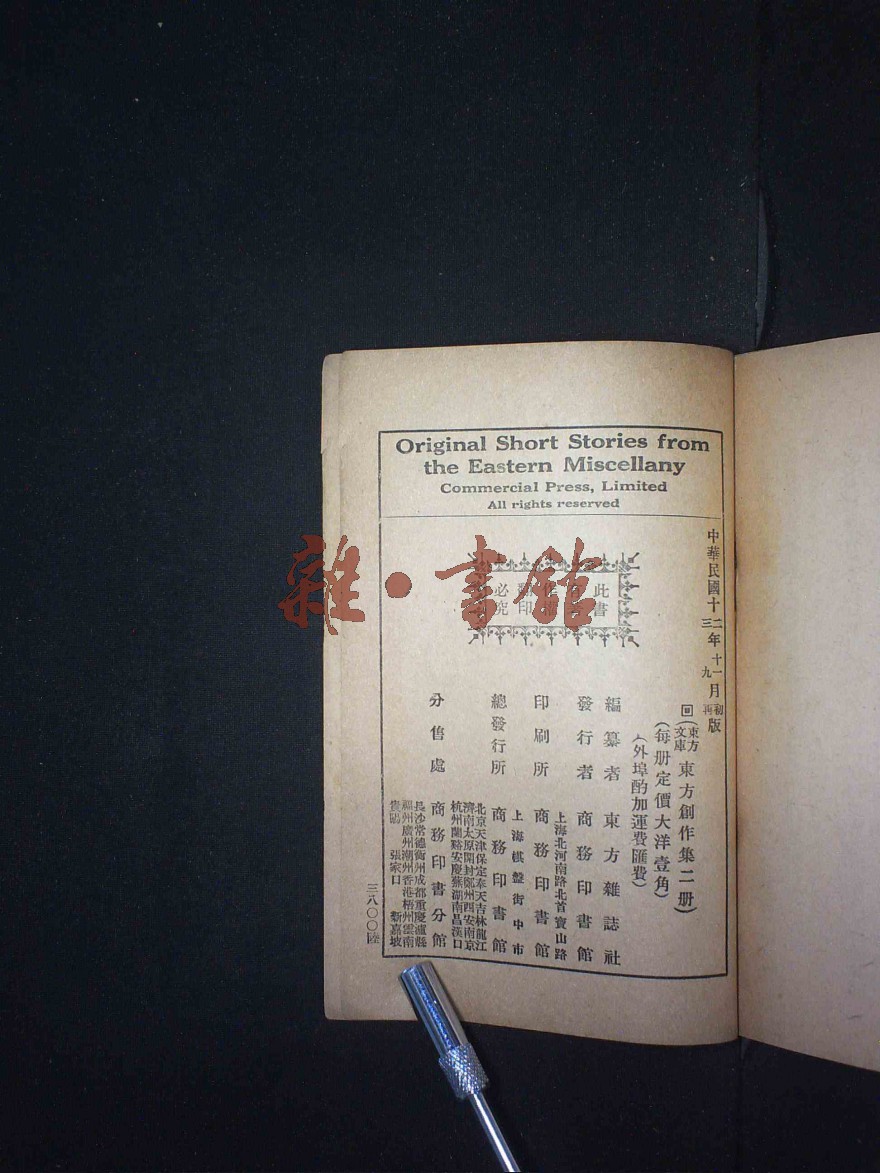 Original Short Stories from
the Eastern Miscellany
Commercial Press, Limited
All rights reserved
中華民國十二年十一月初版
三 九 再
回(東方文庫)東方創作集二册)
(每册定價大洋壹角)
(外埠酌加運費匯費)
此書
翻印
必究
編纂者 東方雜誌社
發行者 商務印書館
上海北河南路北首寶山路
印刷所 商務印書館
上海棋盤街中市
總發行所 商務印書館
北京天津保定奉天吉林龍江
濟南太原開封鄭州西安南京
杭州蘭谿安慶蕪湖南昌漢口
分售處 商務印書分館
長沙常德衡州成都重慶瀘縣
福州廣州潮州香港梧州雲南
貴陽 張家口 新嘉坡
三八〇〇陸
雜·書館